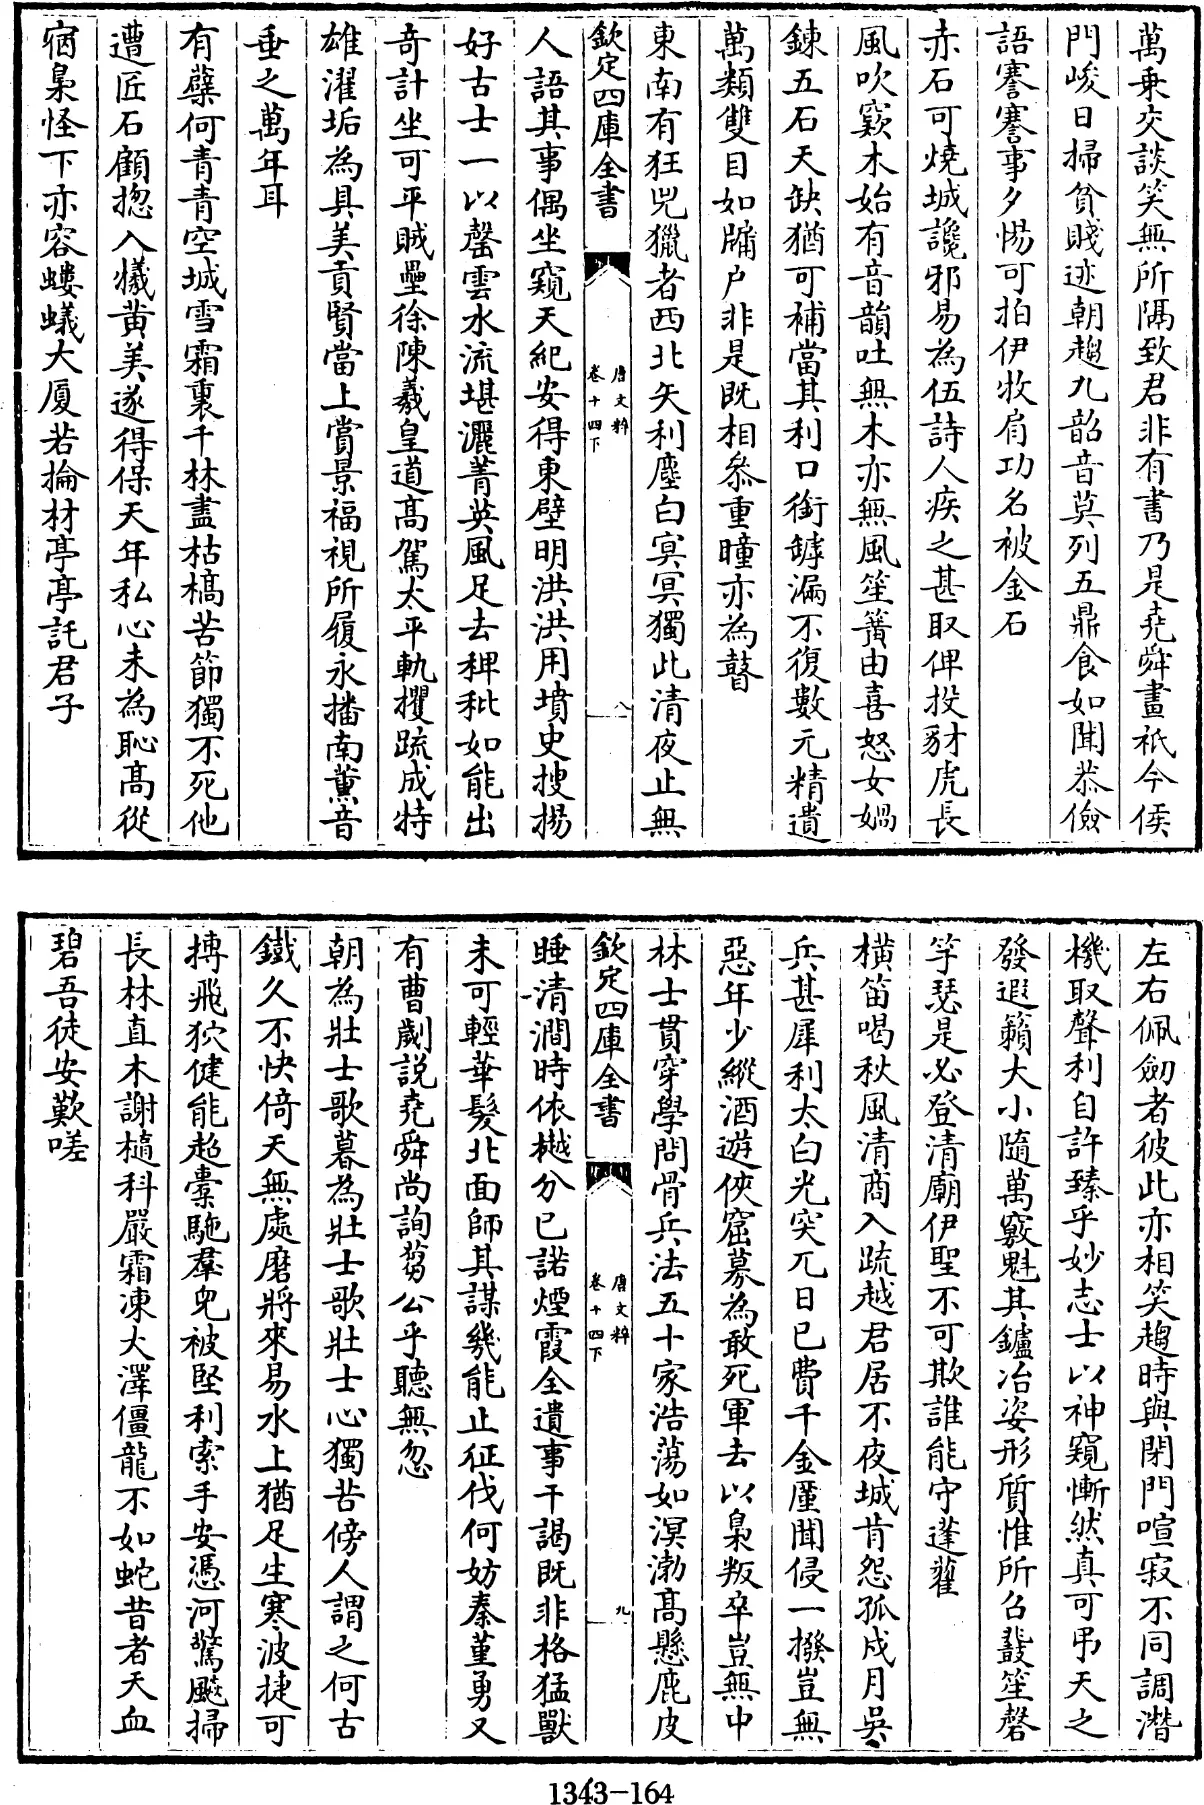 萬乗交談笑無所隔致君非有書乃是堯舜畫祇今侯
門峻日掃貧賤迹朝趨九韶音莫列五鼎食如聞恭儉
語謇謇事夕惕可拍伊牧肩功名被金石
赤石可燒城讒邪易為伍詩人疾之甚取俾投豺虎長
風吹竅木始有音韻吐無木亦無風笙簧由喜怒女媧
鍊五石天缺猶可補當其利口銜罅漏不復數元精遺
萬類雙目如牖户非是既相叅重瞳亦為瞽
東南有狂兕獵者西北矢利塵白冥冥獨此清夜止無
欽定四庫全書
唐文粹
卷十四下
八
人語其事偶坐窺天紀安得東壁明洪洪用墳史搜揚
好古士一以罄雲水流堪灑菁英風足去稗秕如能出
奇計坐可平賊壘徐陳羲皇道高駕太平軌攫疏成特
雄濯垢為具美貢賢當上賞景福視所履永播南薫音
垂之萬年耳
有蘖何青青空城雪霜裏千林盡枯槁苦節獨不死他
遭匠石顧揔入犧黄美遂得保天年私心未為恥高從
宿梟怪下亦容螻蟻大厦若掄材亭亭託君子
左右佩劒者彼此亦相笑趨時與閉門喧寂不同調濳
機取聲利自許臻乎妙志士以神窺慚然真可弔天之
發遐籟大小隨萬竅魁其鑪冶姿形質惟所召鼗笙磬
竽瑟是必登清廟伊聖不可欺誰能守蓬藋
橫笛喝秋風清商入疏越君居不夜城肯怨孤戍月吳
兵甚犀利太白光突兀日已費千金廑聞侵一撥豈無
惡年少縱酒遊俠窟募為敢死軍去以梟叛卒豈無中
林士貫穿學問骨兵法五十家浩蕩如溟渤高懸鹿皮
欽定四庫全書
唐文粹
卷十四下
九
睡清澗時依樾分已諾煙霞全遺事干謁既非格猛獸
未可輕華髮北面師其謀幾能止征伐何妨秦堇勇又
有曹劌説堯舜尚詢芻公乎聽無忽
朝為壯士歌暮為壯士歌壯士心獨苦傍人謂之何古
鐵久不快倚天無處磨將來易水上猶足生寒波捷可
搏飛狖健能超橐駞羣兕被堅利索手安憑河驚飈掃
長林直木謝樠科嚴霜凍大澤僵龍不如蛇昔者天血
碧吾徒安歎嗟
1343-164